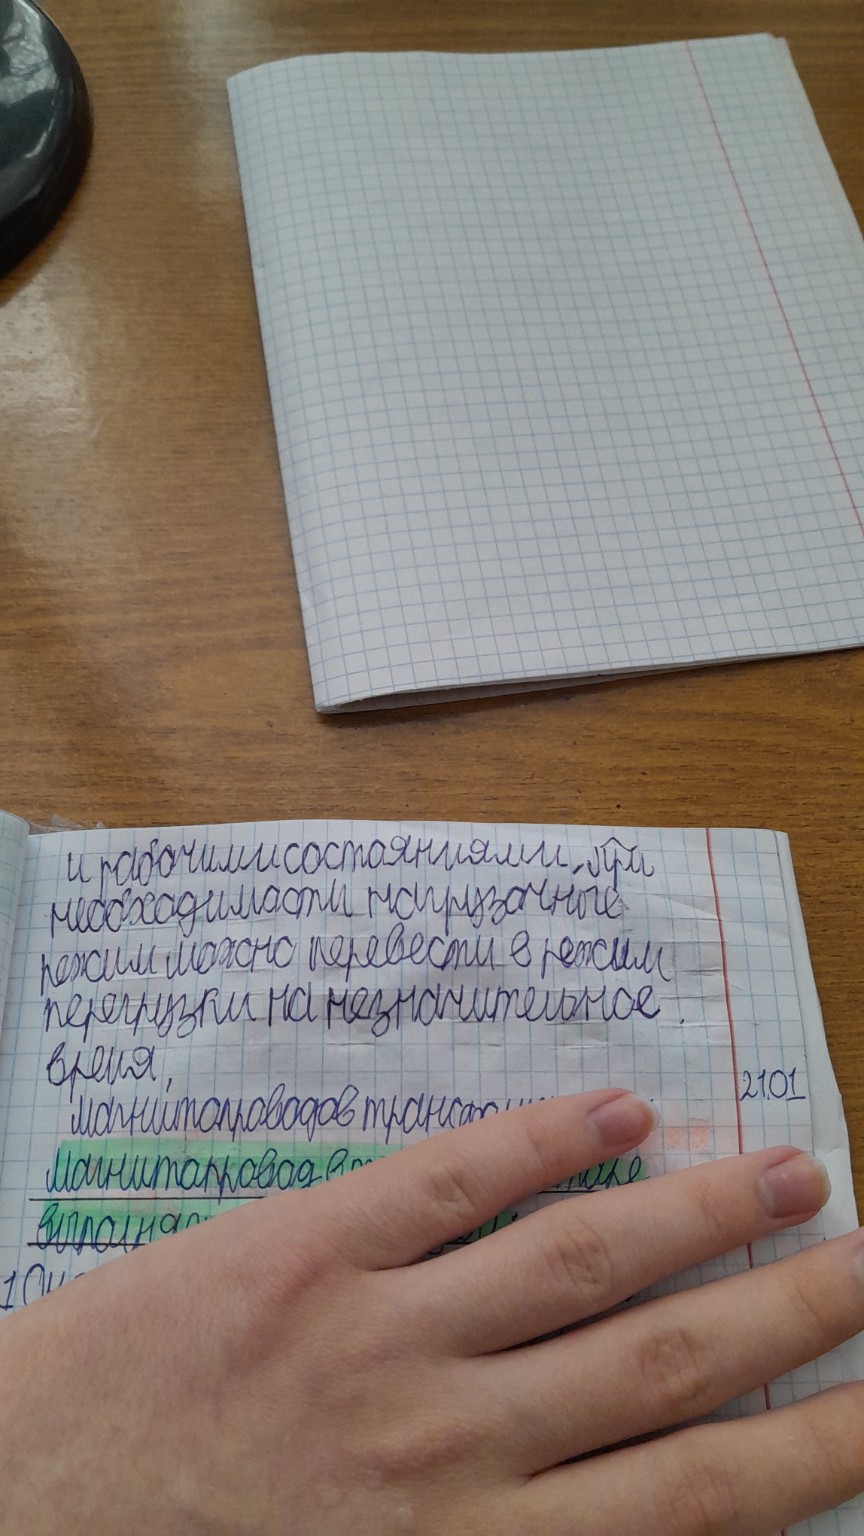 и рабочими состояниями. При
необходимасти нагрузочные
режим можно перевести в режим
перегрузки на незначительное
время.
21.01
магнитапроводов
магнитапровод в
1